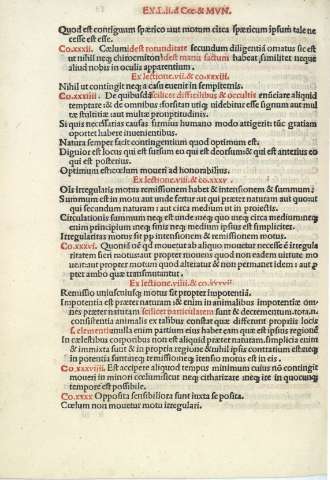 EX.L.ii.d Cœ. & MVN.
Quod est contiguum spærico aut motum circa spæricum ipsum tale ne
cesse est esse.
Co.xxxii. Cœlum idest rotunditas secundum diligentia ornatus sic est
ut nihil neque chirocmiton idest manu factum habeat similiter neque
aliud nobis in oculis apparentium.
Ex lectione.vii. & co.xxxiii.
Nihil ut contingit neque a casu euenit in sempiternis.
Co.xxxiiii. De quibusdā scilicet difficilibus & occultis enūciare aliquid
temptare: & de omnibus: forsitan utique uidebitur esse signum aut mul
tæ stultitiæ aut multæ promptitudinis.
Si quis necessarias causas firmius humano modo attigerit tūc gratiam
oportet habere inuenientibus.
Natura semper facit contingentium quod optimum est.
Dignior est locus qui est sursum eo qui est deorsum & qui est anterius eo
qui est posterius.
Optimum est cœlum moueri ad honorabilius.
Ex lectione.viii. & co.xxxv.
Ois irregularis motus remissionem habet & intensionem & summum:
Summum est in motu aut unde fertur aut quo aut præter naturam aut quo aut
qui secundum naturam: aut circa medium ut in proiectis.
Circulationis summum neque est unde neque quo neque circa medium neque
enim principium neque finis neque medium ipsius est simpliciter.
Irregularitas motus sit intensionem & remissionem motus.
Co.xxxvi. Quoniā oē qd mouetur ab aliquo mouetur necesse ē irregula
ritatem fieri motus aut propter mouens quod non eadem uirtute mo
uet aut propter motum quod alteratur & non permanet idem: aut pro
pter ambo quæ transmutantur.
Ex lectione.viiii. &
Remissio uniuscuiusque motus sit propter impotentiā.
Impotentia est præter naturam: & enim in animalibus impotentiæ om
nes præter naturam scilicet particularem sunt & decrementum.
consistentia animalis ex talibus constat quæ differunt propriis locis
s. elementis nulla enim partium eius habet eam quæ est ipsius regionē
In cælestibus corporibus non est aliquid præter naturam. simplicia enim
& immixta sunt & in propria regione & nihil ipsis contrarium est: neque
in potentia sunt: neque remissio neque intensio motus est in eis.
Co.xxxviii. Est accipere aliquod tempus minimum cuius nō contingit
moueri in minori cœlum: sicut neque citharizare neque ire in quocunque
tempore est possibile.
Co.xxxx Opposita sensibiliora sunt iuxta se posita.
Cœlum non mouetur motu irregulari.